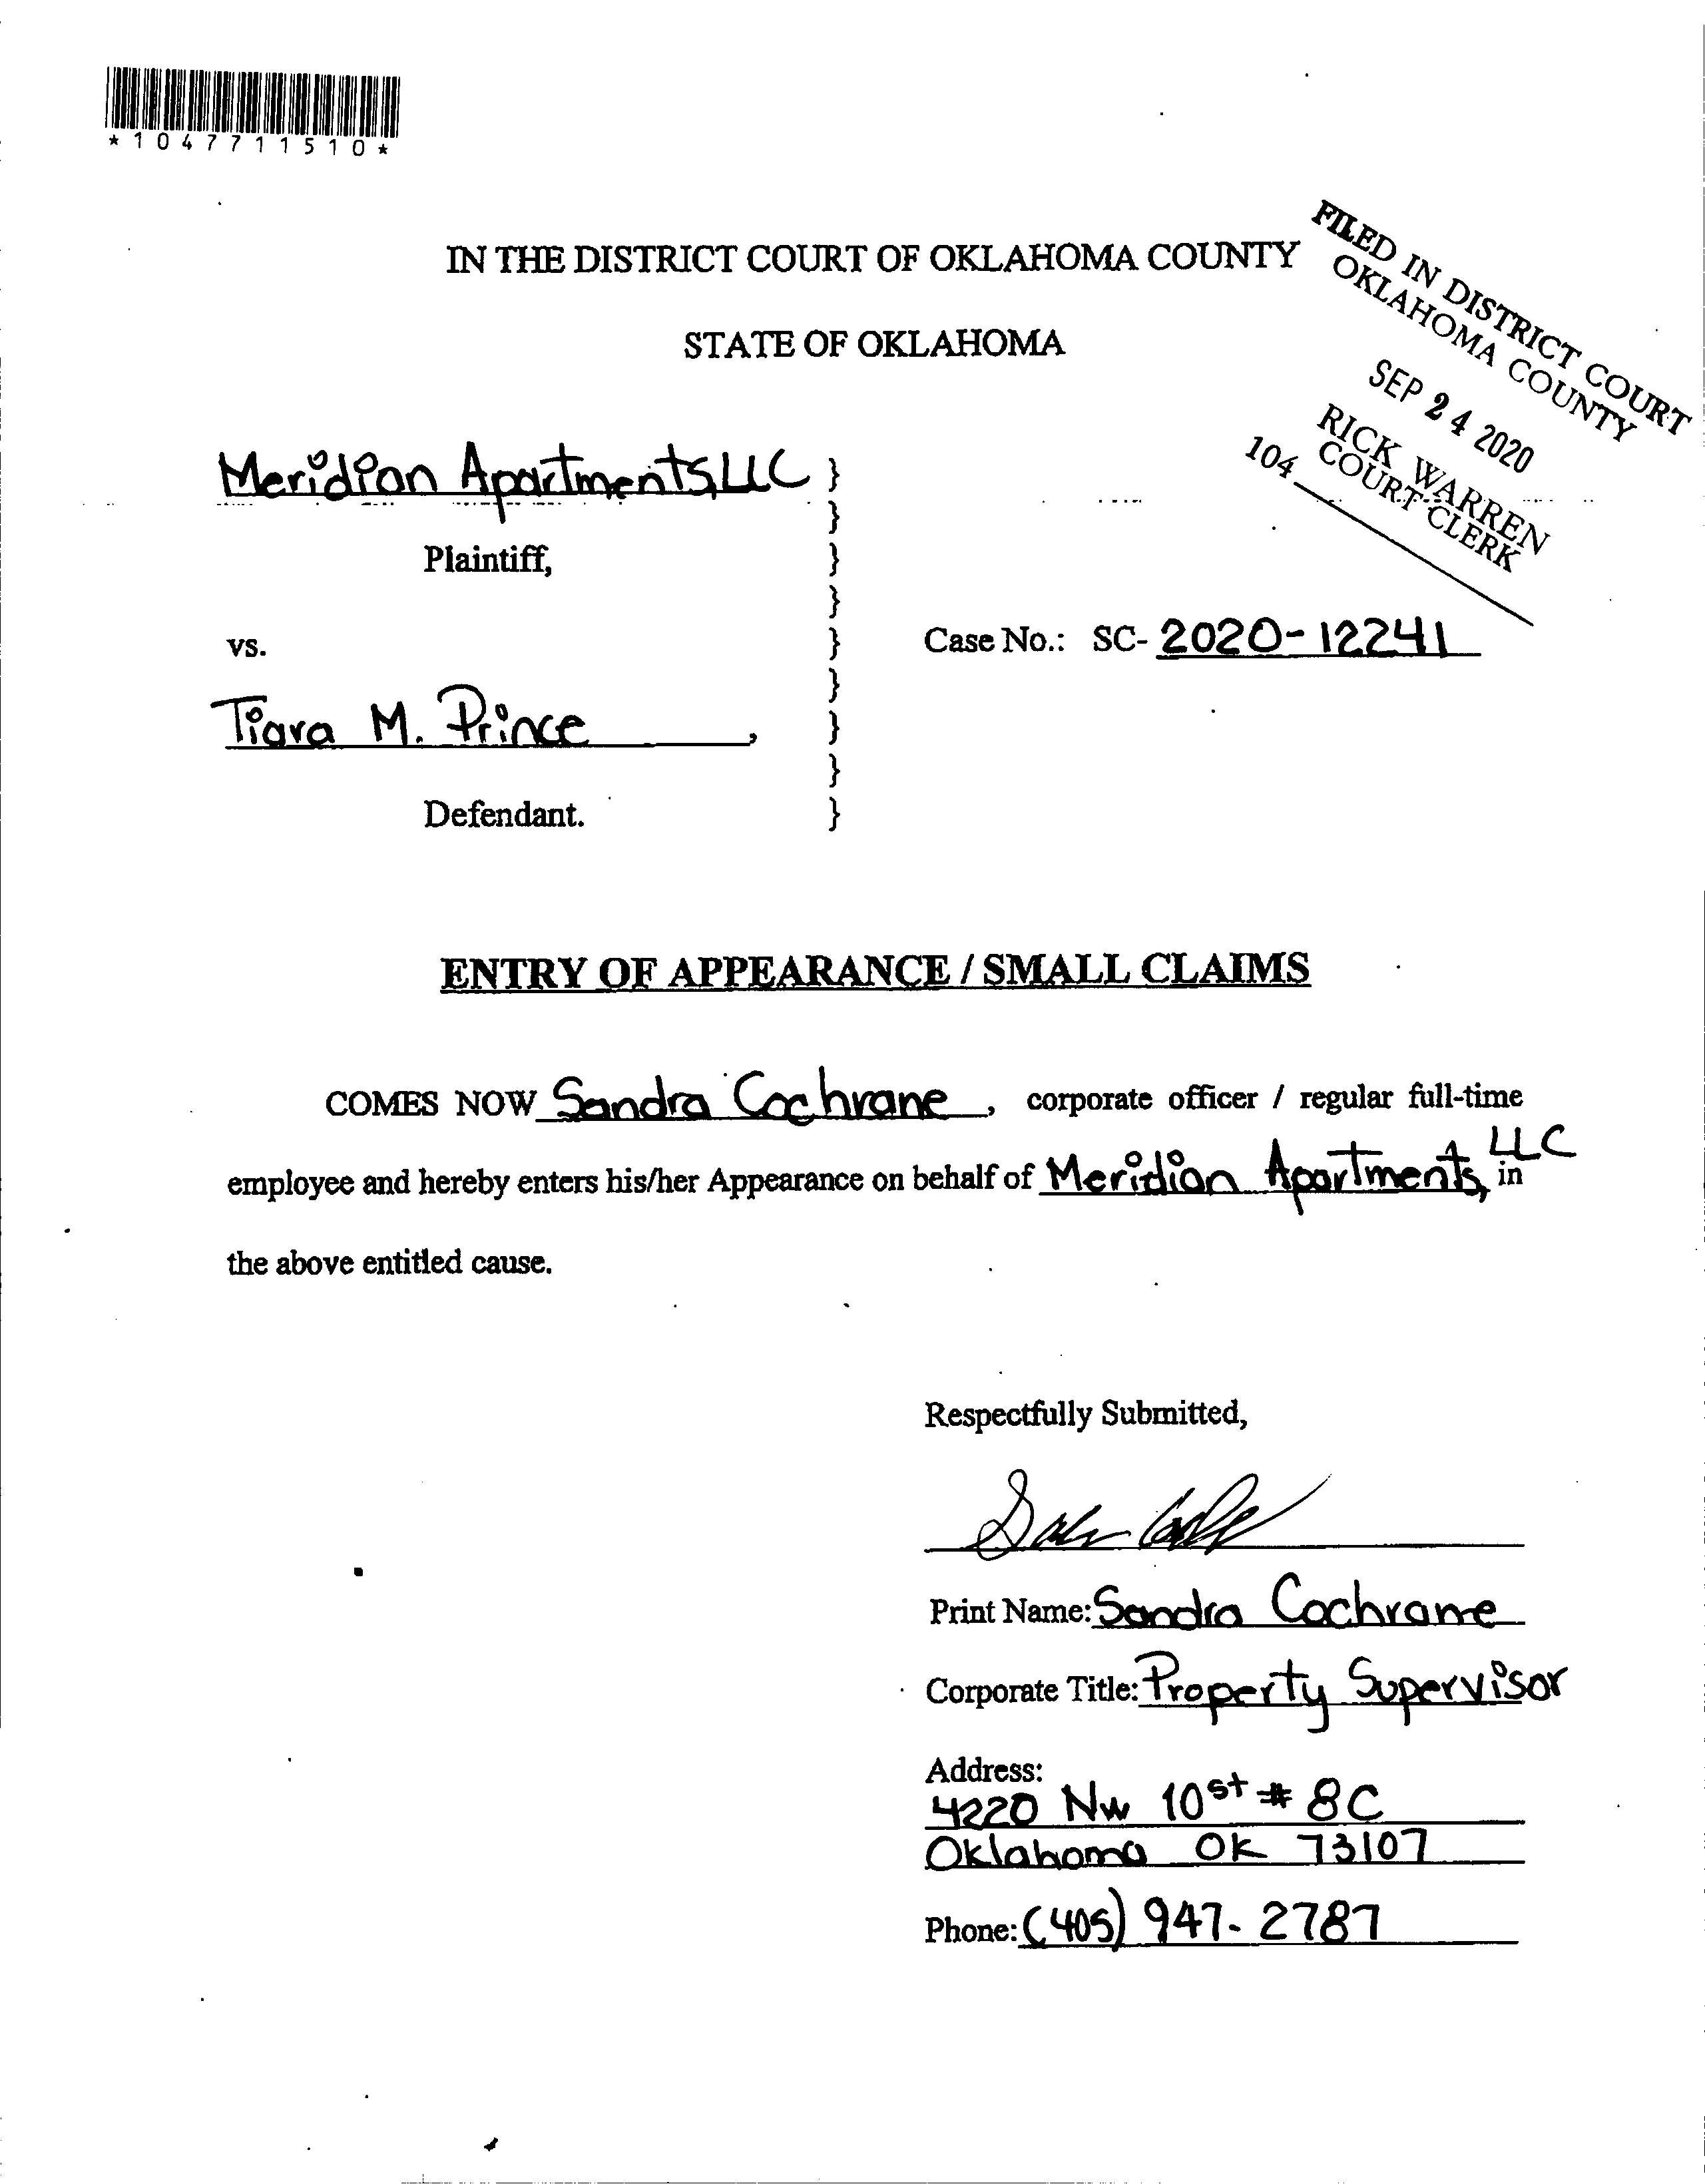 *1047711510*
IN THE DISTRICT COURT OF OKLAHOMA COUNTY
STATE OF OKLAHOMA
FILED IN DISTRICT COURT
OKLAHOMA COUNTY
SEP 24 2020
RICK WARREN
COURT CLERK
104
Meridian Apartments, LLC }
}
Plaintiff, }
}
vs. } Case No.: SC- 2020-12241
}
Tiara M. Prince , }
}
Defendant. }
ENTRY OF APPEARANCE / SMALL CLAIMS
COMES NOW Sandra Cochrane , corporate officer / regular full-time
employee and hereby enters his/her Appearance on behalf of Meridian Apartments, LLC in
the above entitled cause.
Respectfully Submitted,
Print Name: Sandra Cochrane
Corporate Title: Property Supervisor
Address:
4220 NW 10st # 8C
Oklahoma OK 73107
Phone: (405) 947-2787